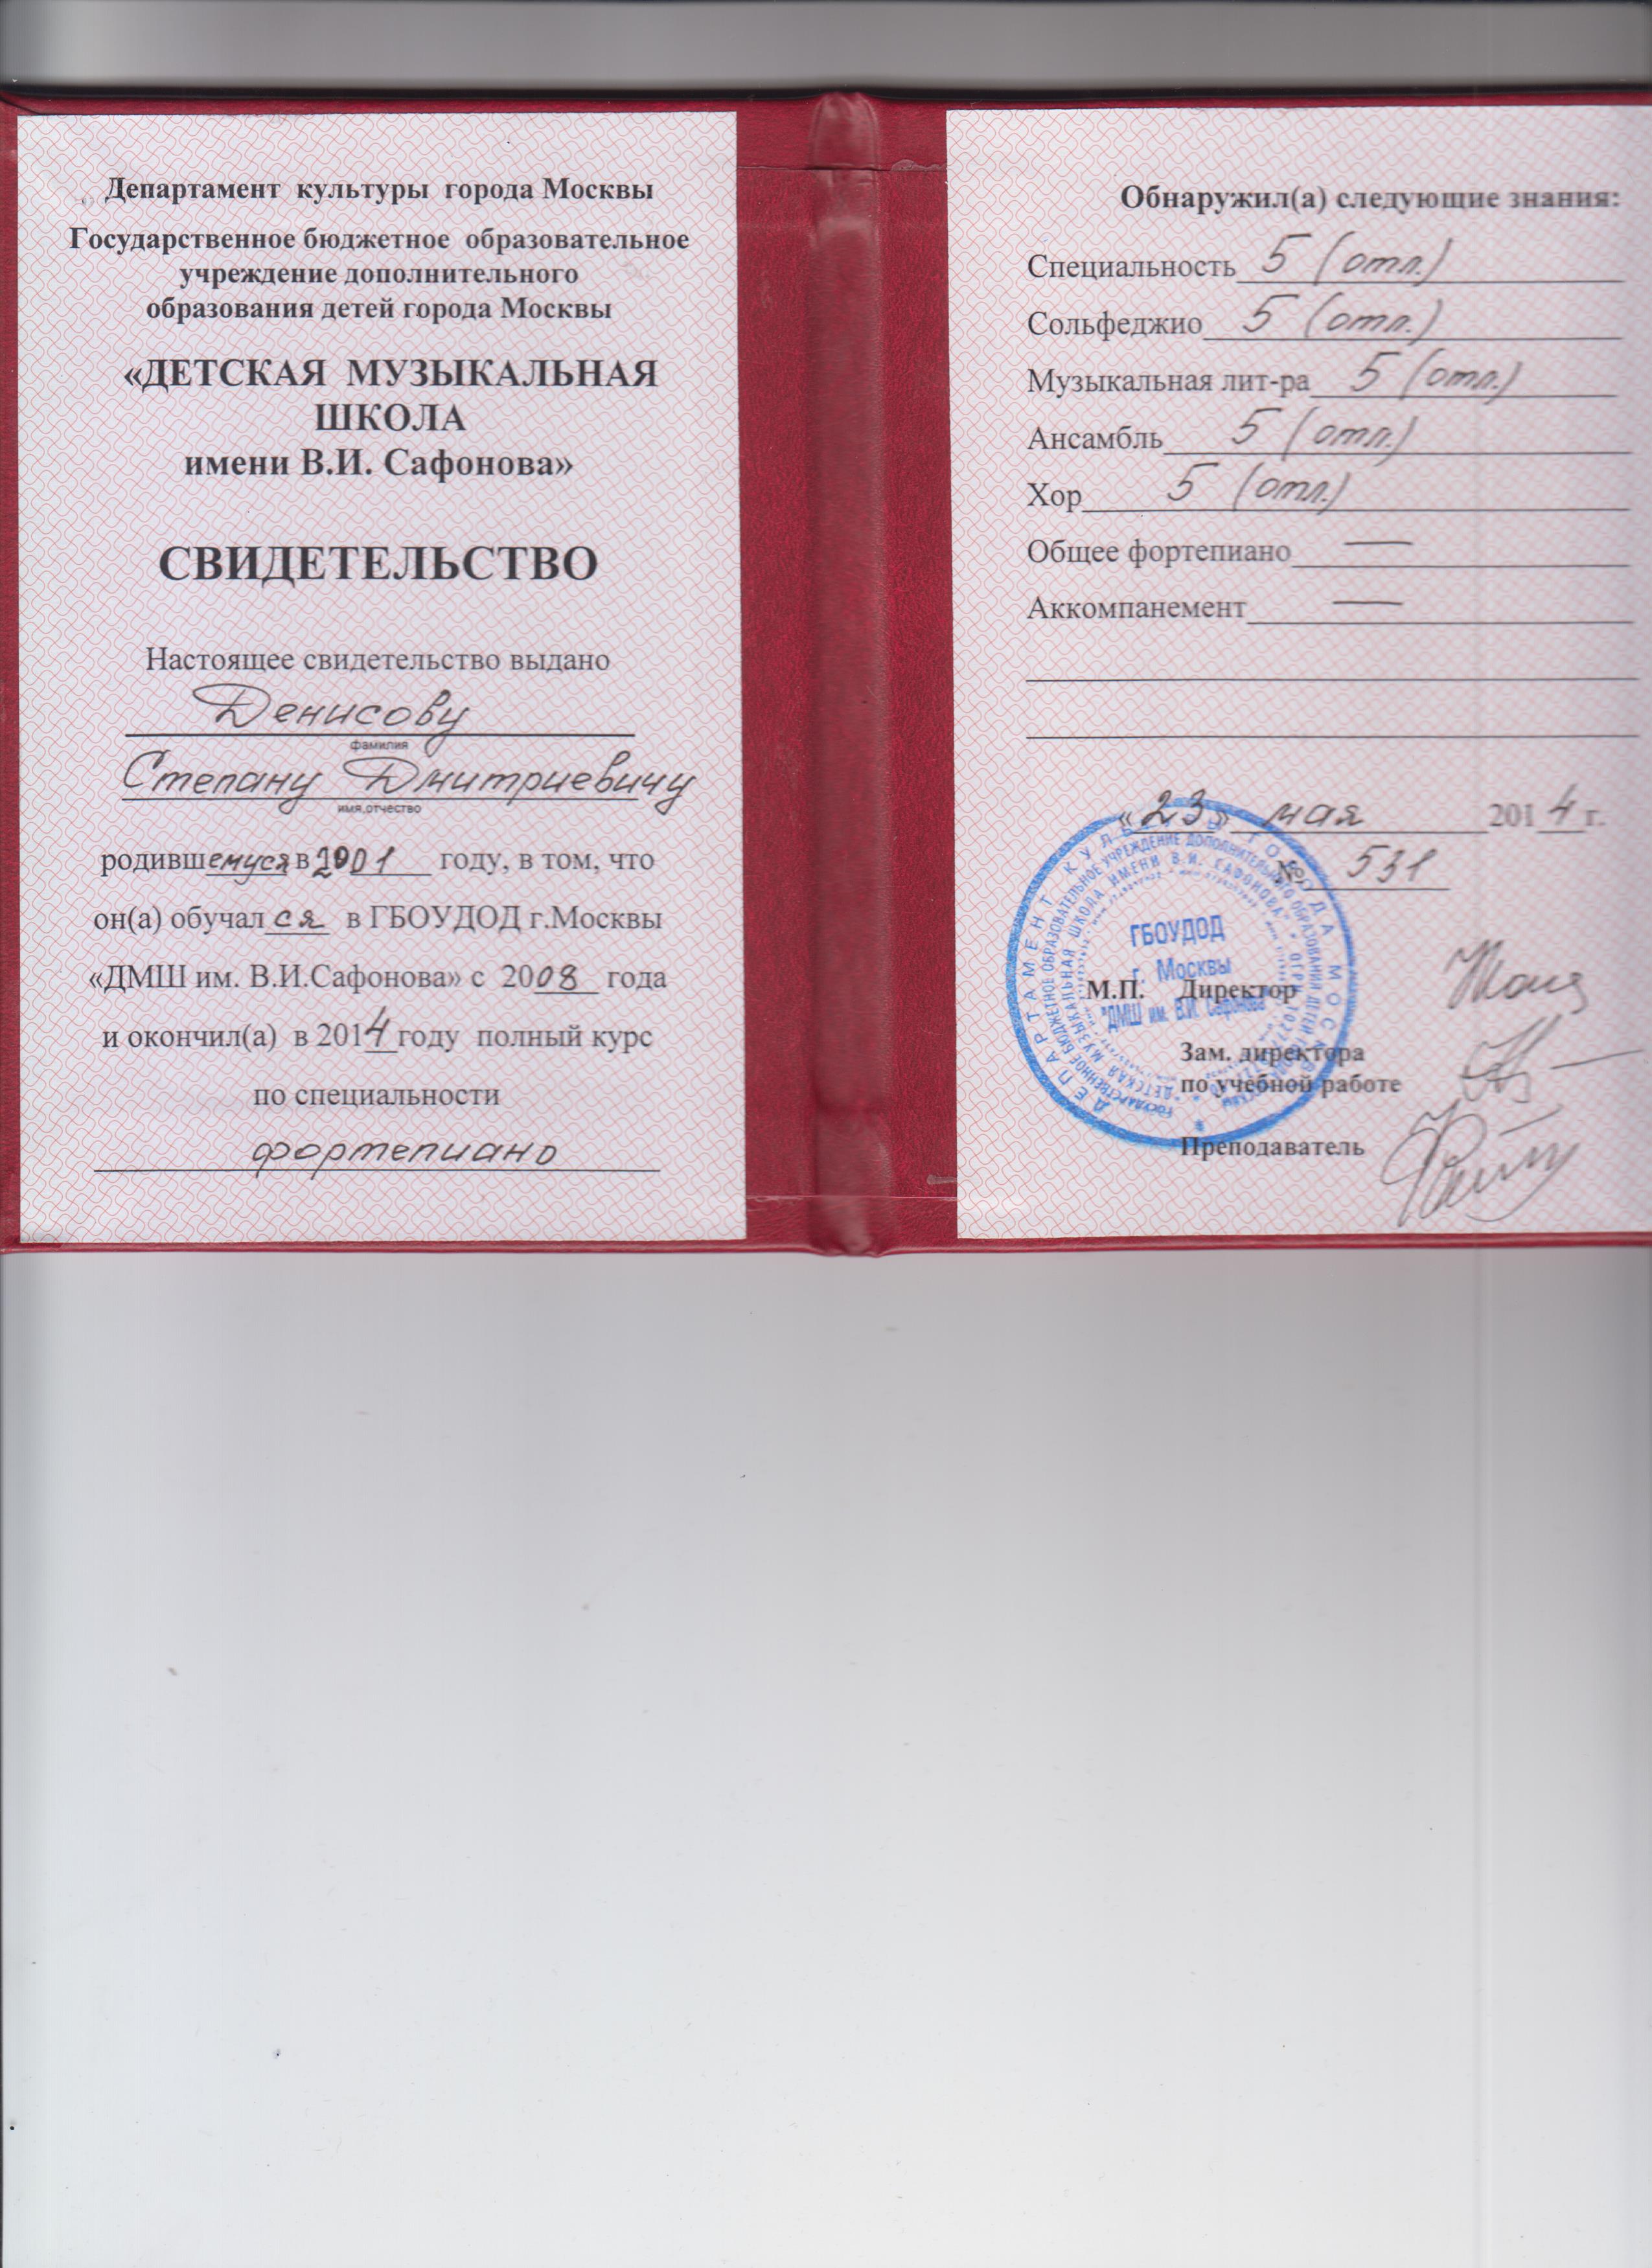 Департамент культуры города Москвы
Государственное бюджетное образовательное
учреждение дополнительного
образования детей города Москвы
«ДЕТСКАЯ МУЗЫКАЛЬНАЯ
ШКОЛА
имени В.И. Сафонова»
СВИДЕТЕЛЬСТВО
Настоящее свидетельство выдано
Денисову
фамилия
Степану Дмитриевичу
имя,отчество
родившемуся в 2001 году, в том, что
он(а) обучался в ГБОУДОД г.Москвы
«ДМШ им. В.И.Сафонова» с 2008 года
и окончил(а) в 2014 году полный курс
по специальности
фортепиано
Обнаружил(а) следующие знания:
Специальность 5 (отл.)
Сольфеджио 5 (отл.)
Музыкальная лит-ра 5 (отл.)
Ансамбль 5 (отл.)
Хор 5 (отл.)
Общее фортепиано —
Аккомпанемент —
«23» мая 2014 г.
№ 531
М.П. Директор
Зам. директора
по учебной работе
Преподаватель
ДЕПАРТАМЕНТ КУЛЬТУРЫ ГОРОДА МОСКВЫ
ГОСУДАРСТВЕННОЕ БЮДЖЕТНОЕ ОБРАЗОВАТЕЛЬНОЕ УЧРЕЖДЕНИЕ ДОПОЛНИТЕЛЬНОГО ОБРАЗОВАНИЯ ДЕТЕЙ ГОРОДА МОСКВЫ
"ДЕТСКАЯ МУЗЫКАЛЬНАЯ ШКОЛА ИМЕНИ В.И. САФОНОВА"
ГБОУДОД
г. Москвы
"ДМШ им. В.И. Сафонова"